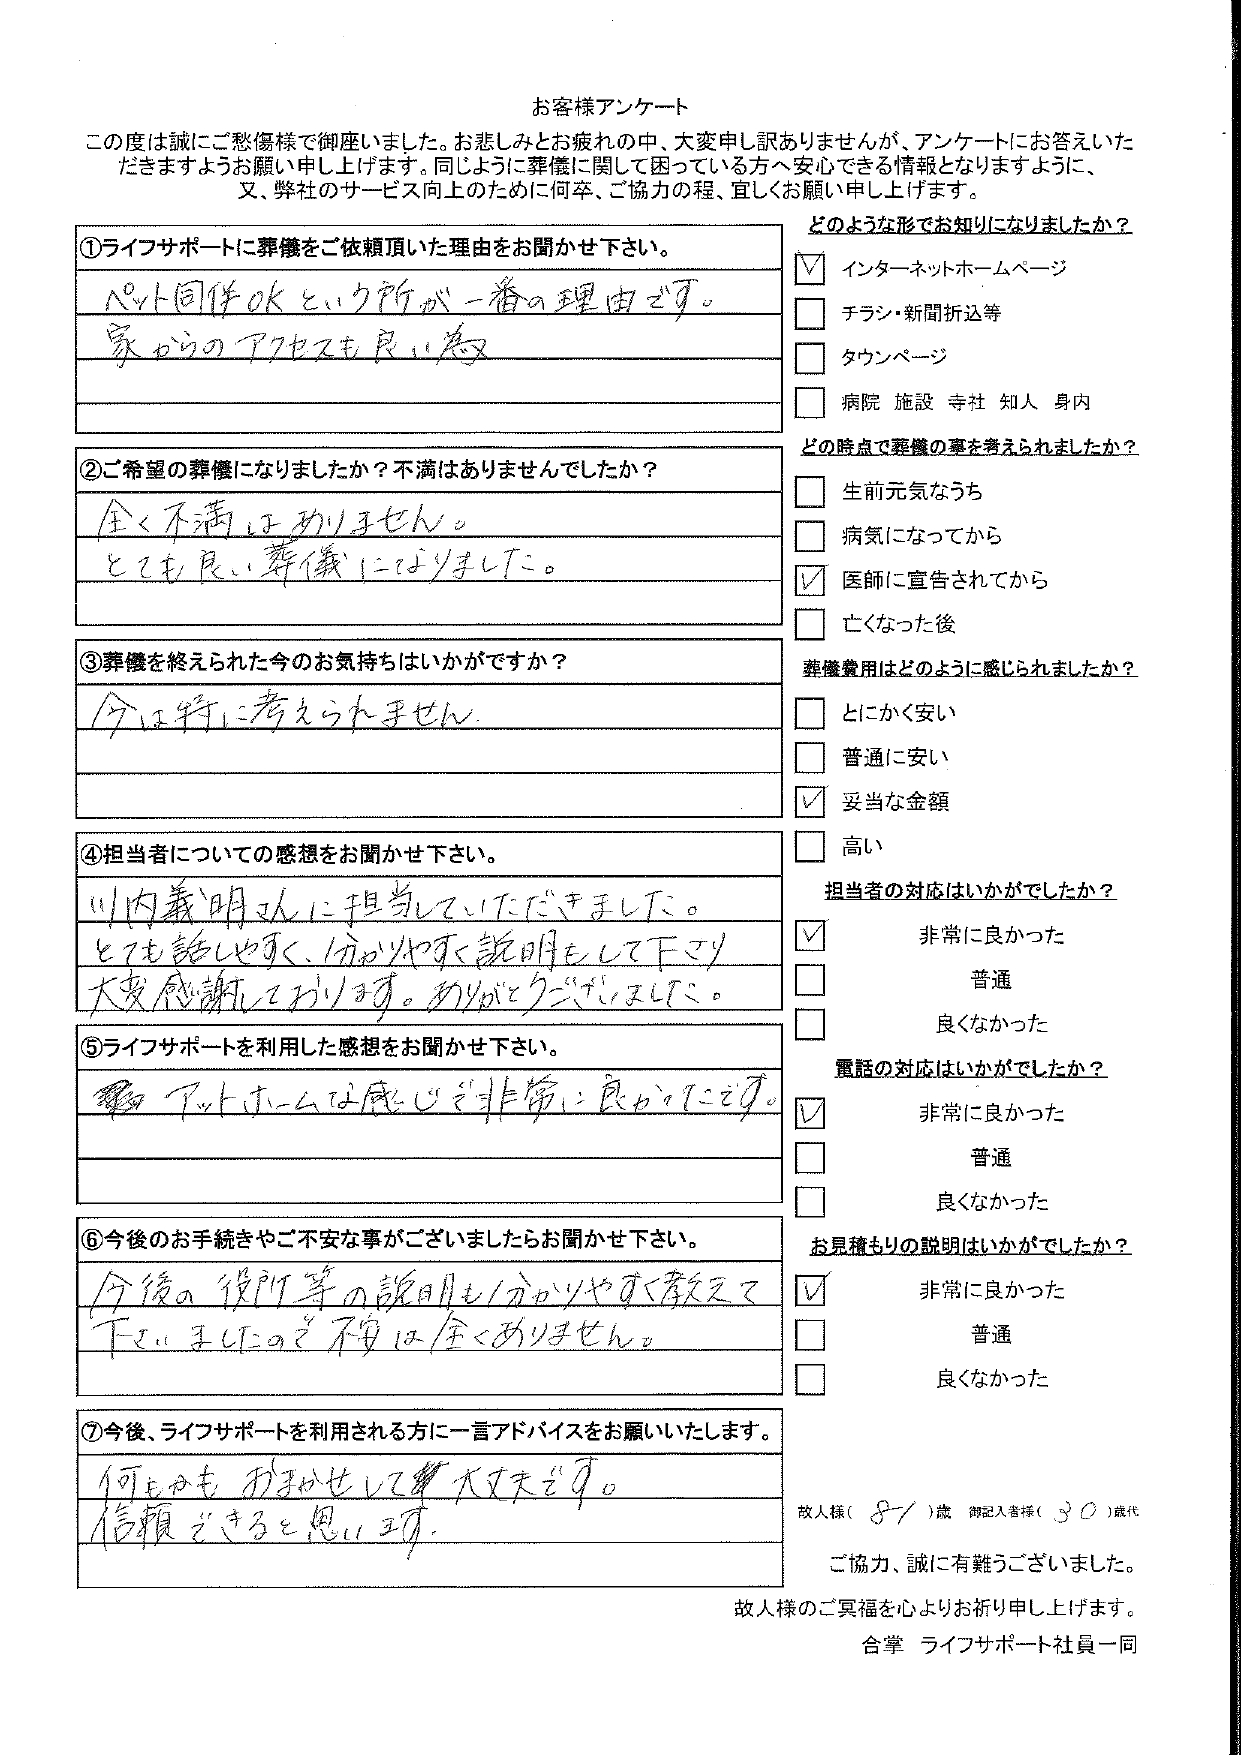 お客様アンケート
この度は誠にご愁傷様で御座いました。お悲しみとお疲れの中、大変申し訳ありませんが、アンケートにお答えいた
だきますようお願い申し上げます。同じように葬儀に関して困っている方へ安心できる情報となりますように、
又、弊社のサービス向上のために何卒、ご協力の程、宜しくお願い申し上げます。
①ライフサポートに葬儀をご依頼頂いた理由をお聞かせ下さい。
ペット同伴OKという所が一番の理由です。
家からのアクセスも良い為
②ご希望の葬儀になりましたか？不満はありませんでしたか？
全く不満はありません。
とても良い葬儀になりました。
③葬儀を終えられた今のお気持ちはいかがですか？
今は特に考えられません.
④担当者についての感想をお聞かせ下さい。
川内義明さんに担当していただきました。
とても話しやすく、分かりやすく説明もして下さり
大変感謝しております。ありがとうございました。
⑤ライフサポートを利用した感想をお聞かせ下さい。
アットホームな感じで非常に良かったです。
⑥今後のお手続きやご不安な事がございましたらお聞かせ下さい。
今後の役所等の説明も分かりやすく教えて
下さいましたので不安は全くありません。
⑦今後、ライフサポートを利用される方に一言アドバイスをお願いいたします。
何もかもおまかせして大丈夫です。
信頼できると思います.
どのような形でお知りになりましたか？
インターネットホームページ
チラシ・新聞折込等
タウンページ
病院 施設 寺社 知人 身内
どの時点で葬儀の事を考えられましたか？
生前元気なうち
病気になってから
医師に宣告されてから
亡くなった後
葬儀費用はどのように感じられましたか？
とにかく安い
普通に安い
妥当な金額
高い
担当者の対応はいかがでしたか？
非常に良かった
普通
良くなかった
電話の対応はいかがでしたか？
非常に良かった
普通
良くなかった
お見積もりの説明はいかがでしたか？
非常に良かった
普通
良くなかった
故人様( 81 )歳 御記入者様( 30 )歳代
ご協力、誠に有難うございました。
故人様のご冥福を心よりお祈り申し上げます。
合掌 ライフサポート社員一同